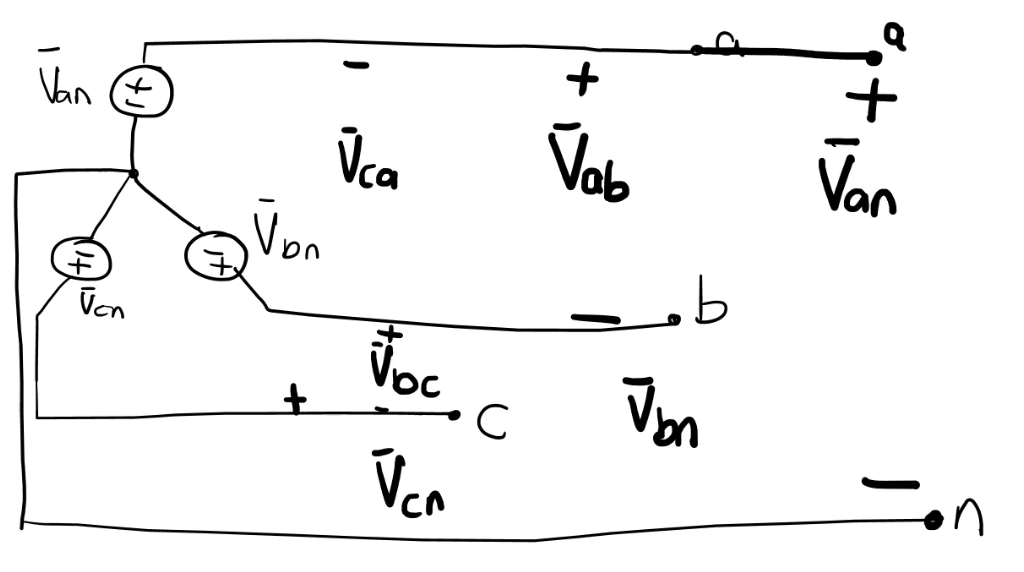 a
a
+ -
V̄an
- +
+
V̄ca
V̄ab
V̄an
V̄bn
- +
- +
V̄cn
b
-
+
V̄bc
-
+
c
V̄bn
V̄cn
-
n